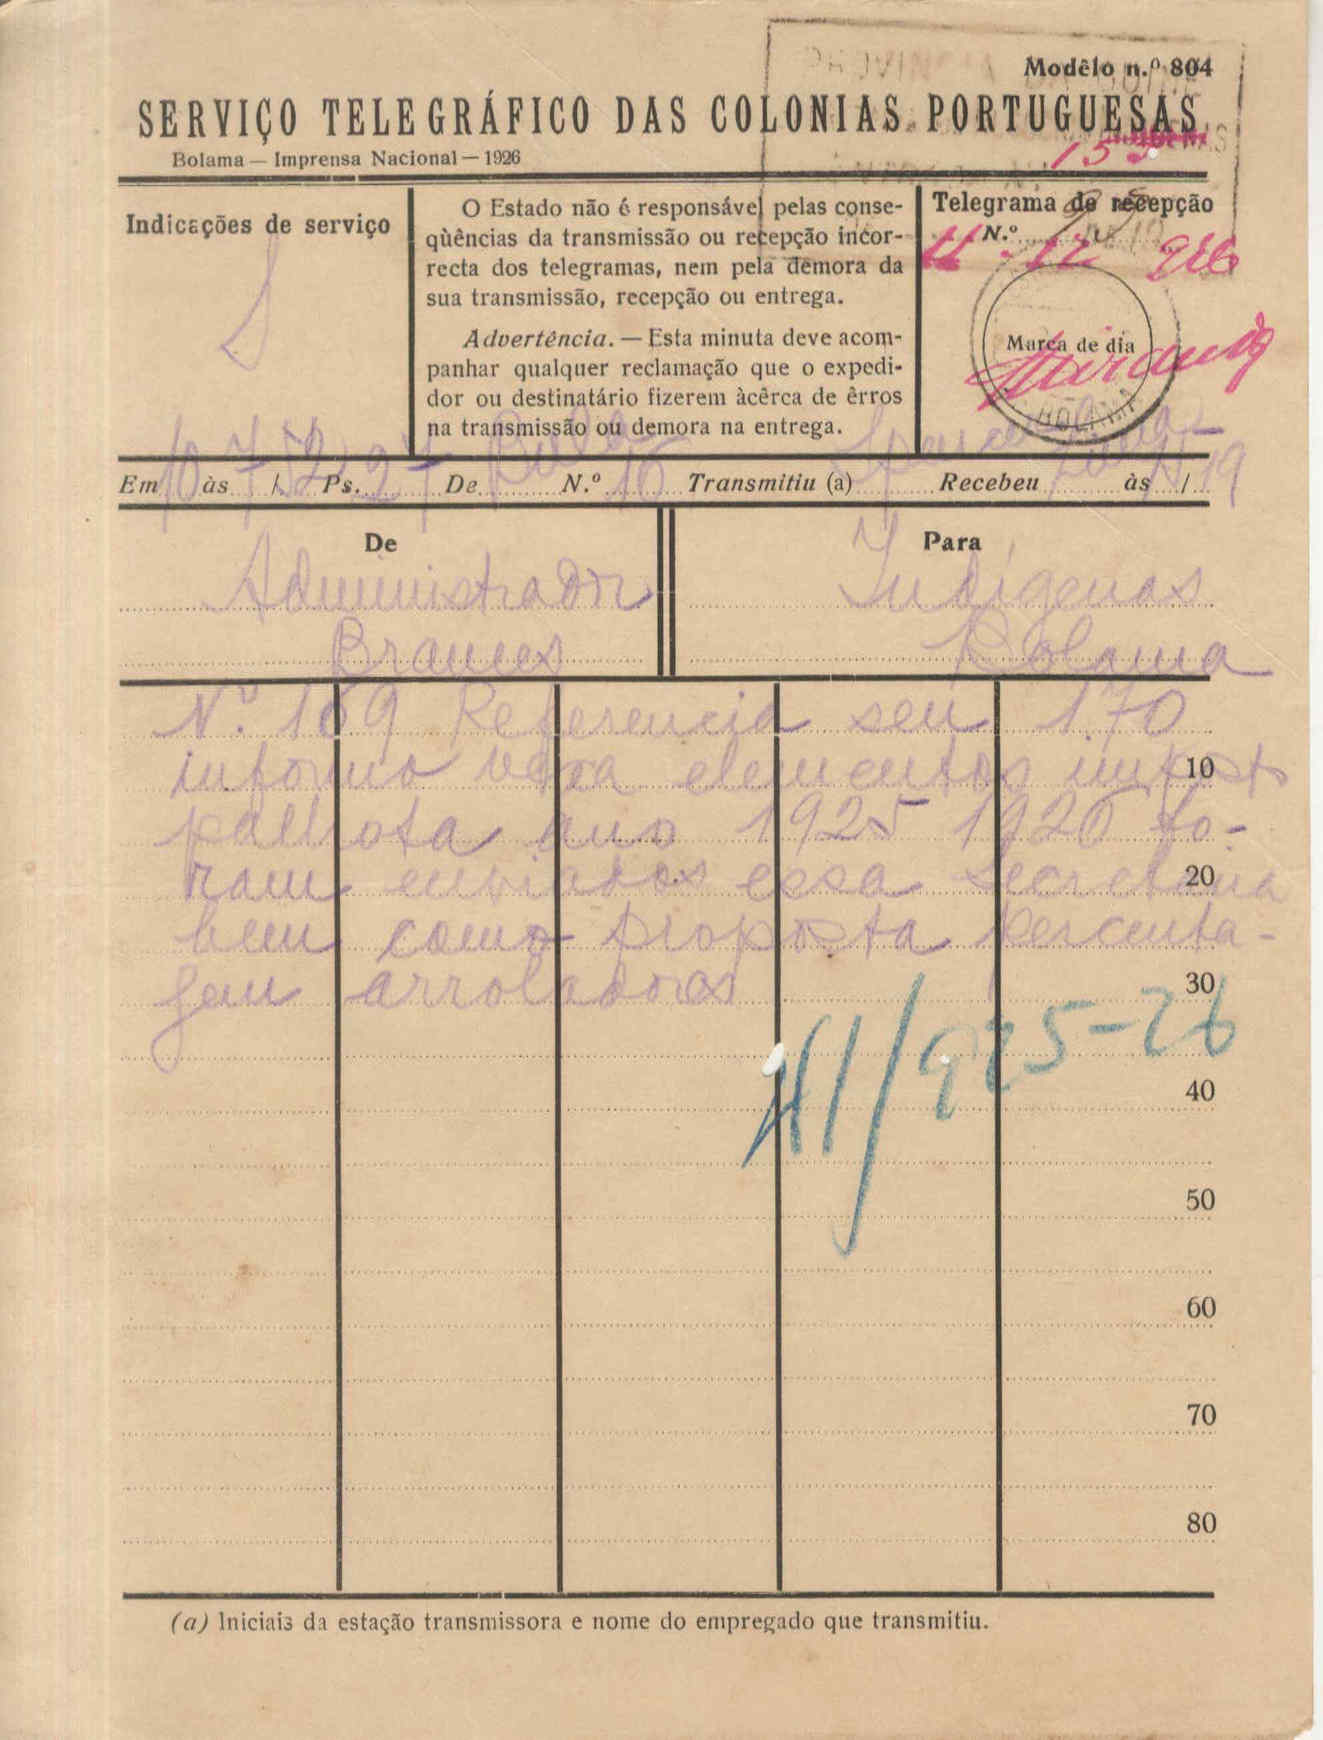 Modêlo n.º 804
SERVIÇO TELEGRÁFICO DAS COLONIAS PORTUGUESAS
Bolama — Imprensa Nacional — 1926
Indicações de serviço
S
O Estado não é responsável pelas conse-
qüências da transmissão ou recepção incor-
recta dos telegramas, nem pela demora da
sua transmissão, recepção ou entrega.
Advertência. — Esta minuta deve acom-
panhar qualquer reclamação que o expedi-
dor ou destinatário fizerem àcêrca de êrros
na transmissão ou demora na entrega.
Telegrama de recepção
N.º
11-12 926
Marca de dia
BOLAMA
Em 10 às 7/52 Ps. 27 De Bula N.º 16 Transmitiu (a) Recebeu às /19
De
Para
Administrador
Indígenas
Brames
Bolama
N.º 169 Referencia seu 170
informo vexa elementos impost
10
palhota ano 1925 1926 fo-
ram enviados essa secretaria
20
bem como proposta percenta-
gem arroladores
30
H1/925-26
40
50
60
70
80
(a) Iniciais da estação transmissora e nome do empregado que transmitiu.